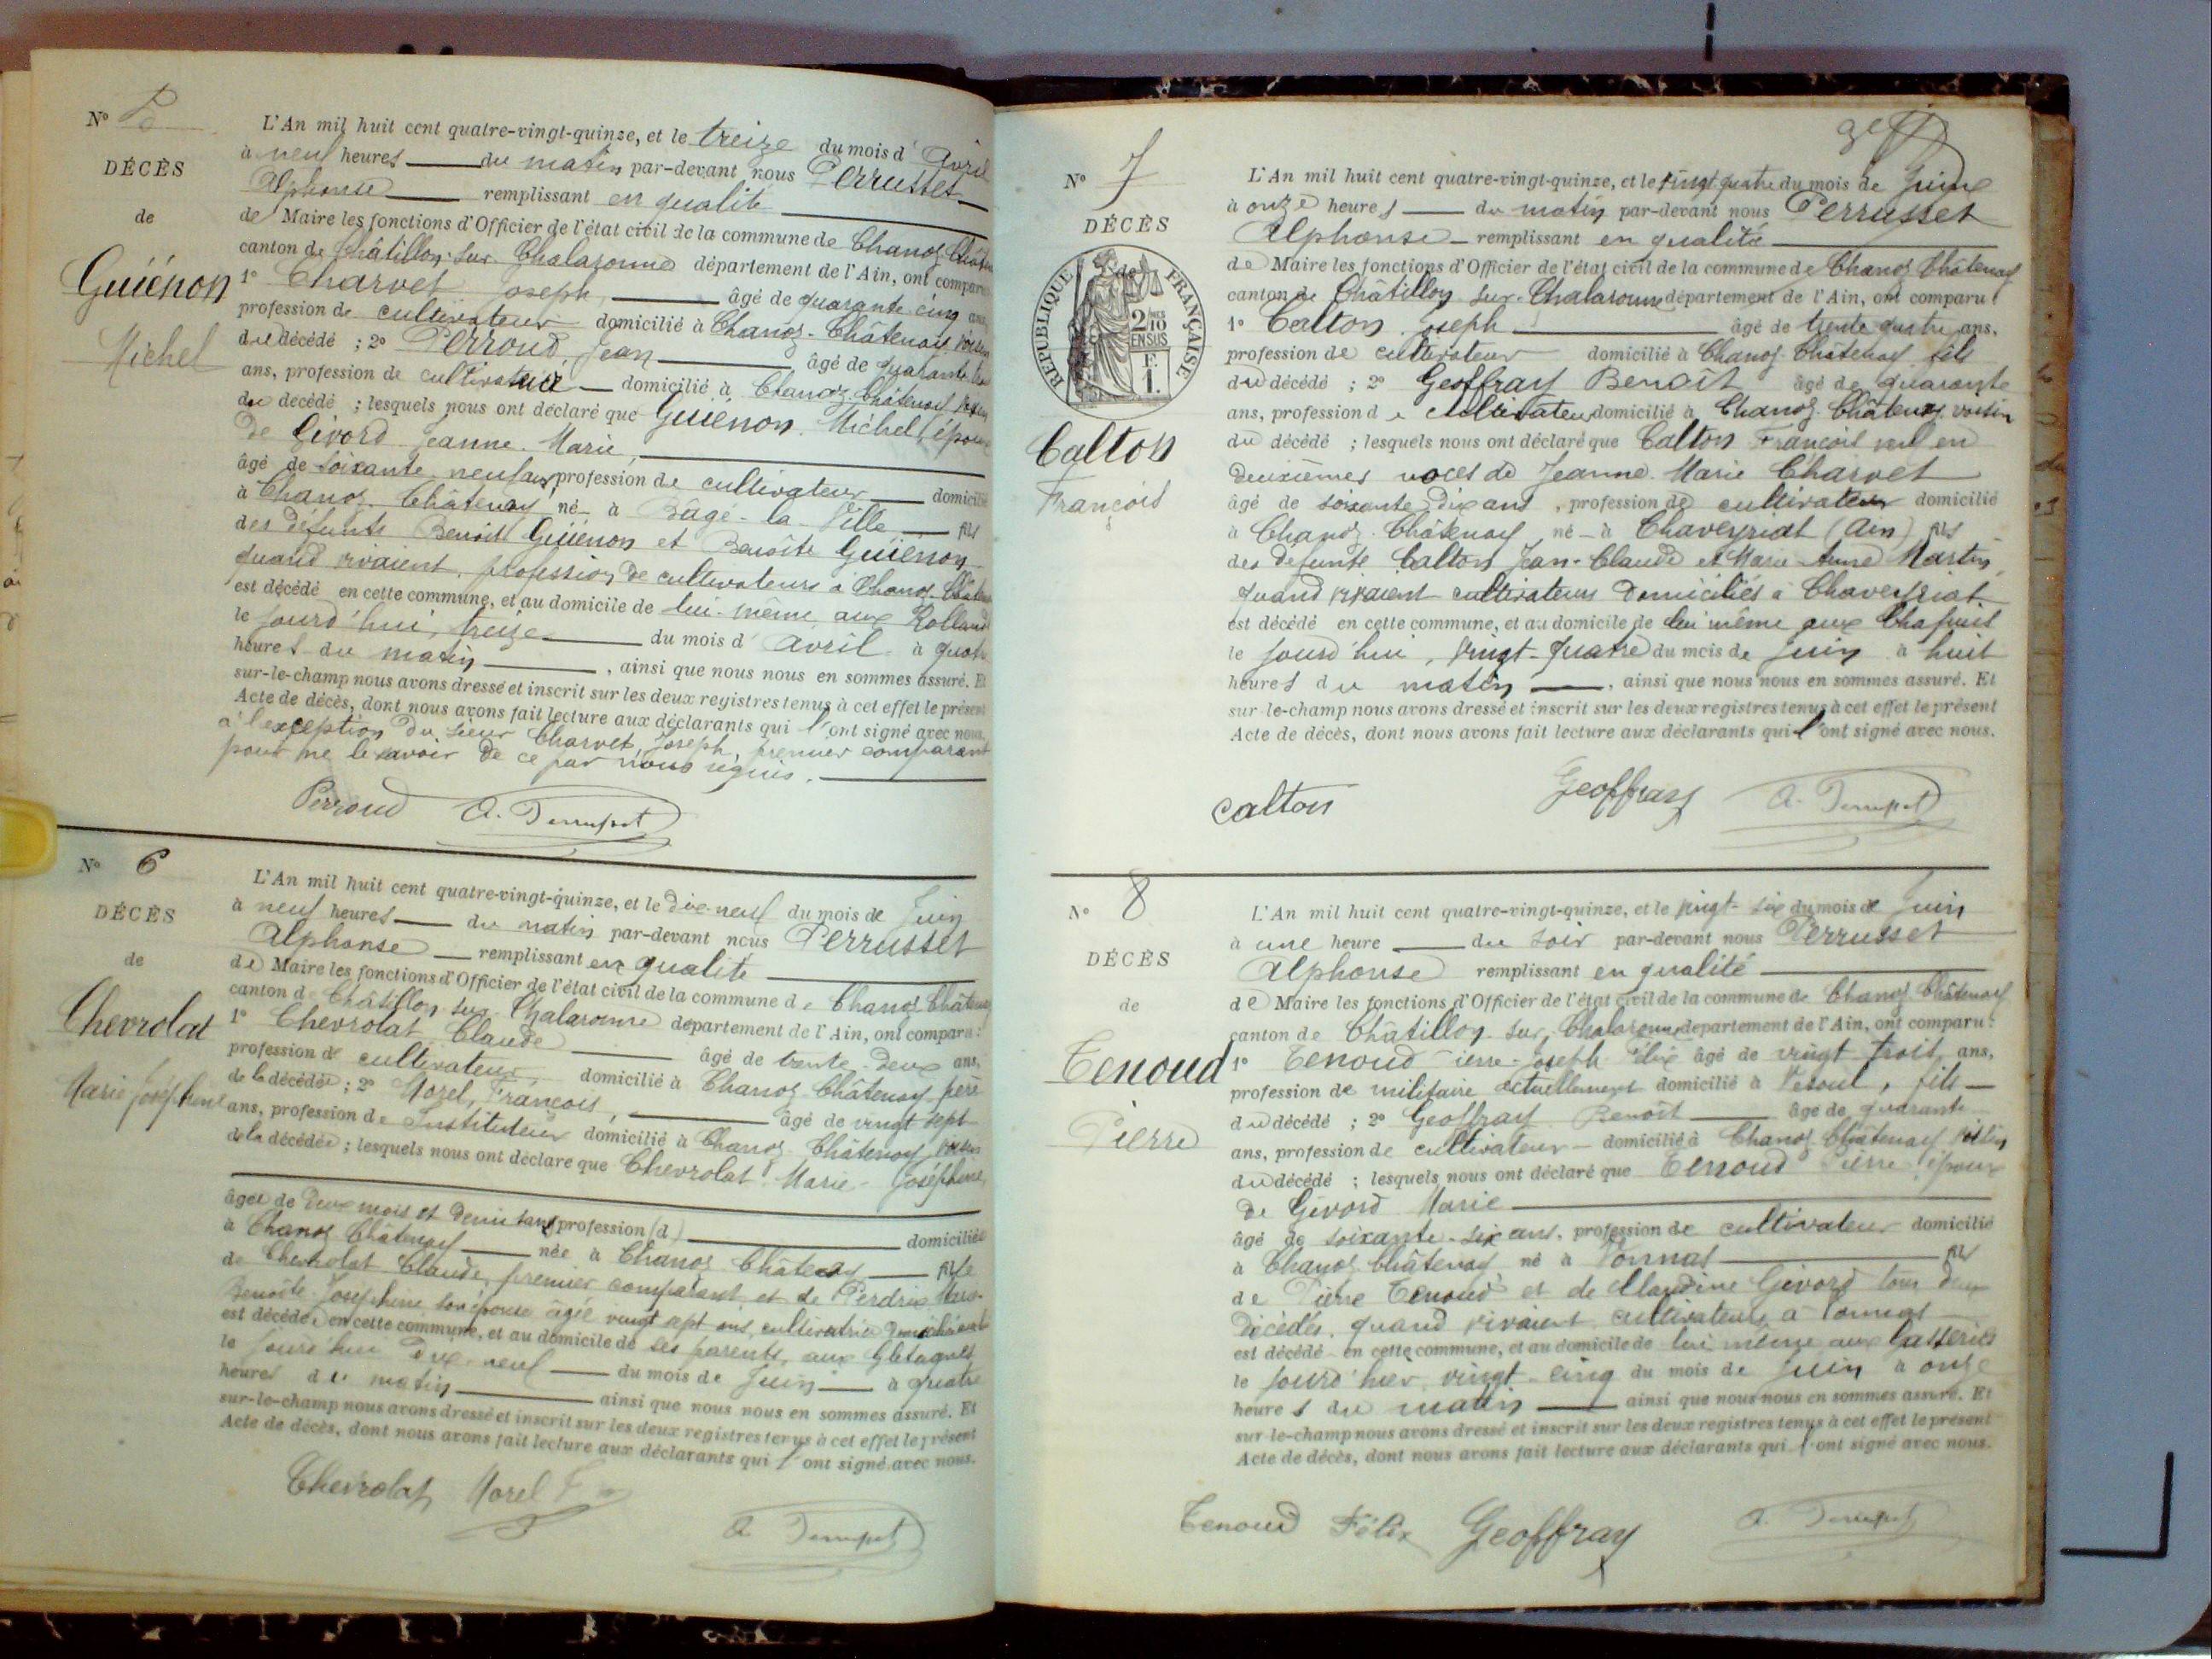 N° 5
DÉCÈS
de
Guiénon
Michel
L'An mil huit cent quatre-vingt-quinze, et le treize du mois d'Avril
à neuf heures du matin par-devant nous Perrusset
Alphonse remplissant en qualité
de Maire les fonctions d'Officier de l'état civil de la commune de Chanoz Chât
canton de Châtillon-sur-Chalaronne département de l'Ain, ont compar
1° Charvet Joseph, âgé de quarante cinq ans
profession de cultivateur domicilié à Chanoz-Châtenay, voisin
du décédé ; 2° Perroud, Jean âgé de quarante
ans, profession de cultivateur domicilié à Chanoz-Châtenay voisin
du décédé ; lesquels nous ont déclaré que Guiénon Michel, époux
de Givord Jeanne-Marie,
âgé de soixante neuf ans profession de cultivateur domicilié
à Chanoz-Châtenay né à Bâgé-la-Ville fils
des défunts Benoit Guiénon et Benoîte Guiénon
quand vivaient, profession de cultivateurs à Chanoz-Châten
est décédé en cette commune, et au domicile de lui-même, aux Rolland
le jourd'hui, treize du mois d'avril à quatre
heures du matin, ainsi que nous nous en sommes assuré. Et
sur-le-champ nous avons dressé et inscrit sur les deux registres tenus à cet effet le présent
Acte de décès, dont nous avons fait lecture aux déclarants qui l'ont signé avec nous,
à l'exception du sieur Charvet, Joseph, premier comparant
pour ne le savoir de ce par nous requis.
Perroud A. Perrusset
N° 6
DÉCÈS
de
Chevrolat
Marie Joséphine
L'An mil huit cent quatre-vingt-quinze, et le dix-neuf du mois de Juin
à neuf heures du matin par-devant nous Perrusset
Alphonse remplissant en qualité
de Maire les fonctions d'Officier de l'état civil de la commune de Chanoz Châten
canton de Châtillon sur Chalaronne département de l'Ain, ont comparu :
1° Chevrolat Claude âgé de trente-deux ans,
profession de cultivateur, domicilié à Chanoz-Châtenay père
de la décédée ; 2° Morel, François, âgé de vingt sept
ans, profession de Instituteur domicilié à Chanoz Châtenay voisin
de la décédée ; lesquels nous ont déclaré que Chevrolat Marie-Joséphine,
âgée de deux mois et demi sans profession (d) domiciliée
à Chanoz Châtenay née à Chanoz Châtenay fille
de Chevrolat Claude, premier comparant, et de Perdrix
Benoîte Joséphine son épouse âgée vingt sept ans, cultivatrice
est décédée en cette commune, et au domicile de ses parents, aux Gletagnes
le jourd'hui dix-neuf du mois de Juin à quatre
heures du matin ainsi que nous nous en sommes assuré. Et
sur-le-champ nous avons dressé et inscrit sur les deux registres tenus à cet effet le présent
Acte de décès, dont nous avons fait lecture aux déclarants qui l'ont signé avec nous.
Chevrolat Morel F
A. Perrusset
N° 7
DÉCÈS
de
RÉPUBLIQUE FRANÇAISE
2/10 EN SUS
1 F.
Calton
François
L'An mil huit cent quatre-vingt-quinze, et le vingt-quatre du mois de Juin
à onze heures du matin par-devant nous Perrusset
Alphonse remplissant en qualité
de Maire les fonctions d'Officier de l'état civil de la commune de Chanoz Châtenay
canton de Châtillon sur-Chalaronne département de l'Ain, ont comparu :
1° Calton Joseph âgé de trente quatre ans,
profession de cultivateur domicilié à Chanoz Châtenay fils
du décédé ; 2° Geoffray Benoît âgé de quarante
ans, profession de cultivateur domicilié à Chanoz-Châtenay voisin
du décédé ; lesquels nous ont déclaré que Calton François veuf en
deuxièmes noces de Jeanne-Marie Charvet
âgé de soixante dix ans, profession de cultivateur domicilié
à Chanoz-Châtenay né à Chaveyriat (Ain) fils
des défunts Calton Jean-Claude et Marie-Anne Martin,
quand vivaient cultivateurs domiciliés à Chaveyriat
est décédé en cette commune, et au domicile de lui même aux Chapuis
le jourd'hui, vingt-quatre du mois de Juin à huit
heures du matin, ainsi que nous nous en sommes assuré. Et
sur-le-champ nous avons dressé et inscrit sur les deux registres tenus à cet effet le présent
Acte de décès, dont nous avons fait lecture aux déclarants qui l'ont signé avec nous.
Calton Geoffray A. Perrusset
N° 8
DÉCÈS
de
Tenoud
Pierre
L'An mil huit cent quatre-vingt-quinze, et le vingt-six du mois de Juin
à une heure du soir par-devant nous Perrusset
Alphonse remplissant en qualité
de Maire les fonctions d'Officier de l'état civil de la commune de Chanoz Châtenay
canton de Châtillon-sur-Chalaronne département de l'Ain, ont comparu :
1° Tenoud Pierre-Joseph Félix âgé de vingt trois ans,
profession de militaire actuellement domicilié à Vesoul, fils
du décédé ; 2° Geoffray Benoît âgé de quarante
ans, profession de cultivateur domicilié à Chanoz Châtenay voisin
du décédé ; lesquels nous ont déclaré que Tenoud Pierre, époux
de Givord Marie
âgé de soixante-six ans, profession de cultivateur domicilié
à Chanoz Châtenay né à Vonnas fils
de Pierre Tenoud et de Claudine Givord tous deux
décédés, quand vivaient cultivateurs à Vonnas
est décédé en cette commune, et au domicile de lui même aux Casseries
le jourd'hier, vingt-cinq du mois de Juin à onze
heures du matin ainsi que nous nous en sommes assuré. Et
sur-le-champ nous avons dressé et inscrit sur les deux registres tenus à cet effet le présent
Acte de décès, dont nous avons fait lecture aux déclarants qui l'ont signé avec nous.
Tenoud Félix Geoffray A. Perrusset